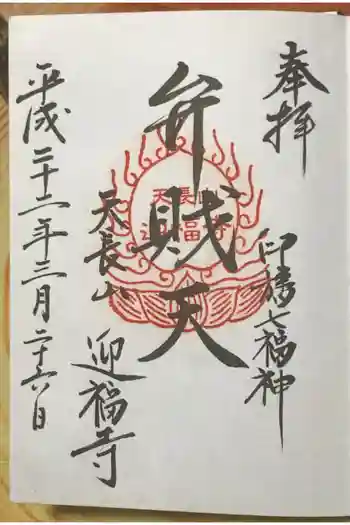 奉拝
印旛七福神
弁財天
天長山
迎福寺
天長山
迎福寺
平成二十二年三月二十六日